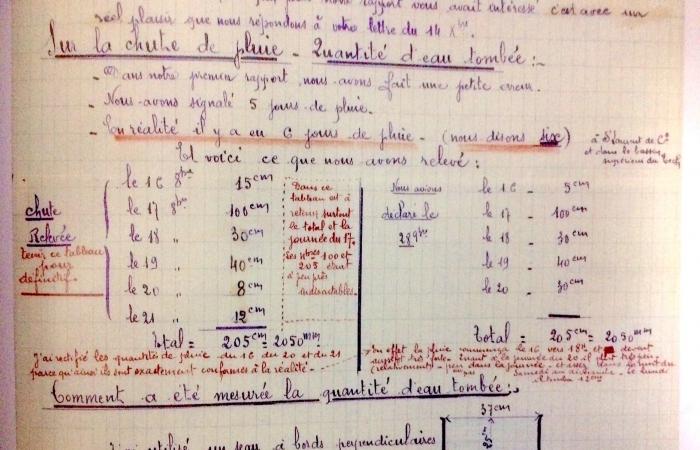 rapport vous avait intéressé c'est avec un
réel plaisir que nous répondons à votre lettre du 14 Xbre
Sur la chute de pluie - Quantité d'eau tombée :-
- Dans notre premier rapport nous avons fait une petite erreur.
- Nous avons signalé 5 jours de pluie.
- En réalité il y a eu 6 jours de pluie - (nous disons six)
à St Laurent de Cs
et dans le bassin
supérieur du Tech
Et voici ce que nous avons relevé :
chute
Relevée
tenir ce tableau
pour
définitif.
le 16 8bre 15cm
le 17 8bre 100cm
le 18 " 30cm
le 19 " 40cm
le 20 " 8cm
le 21 " 12cm
Total = 205cm = 2050mm
Dans ce
tableau est à
retenir surtout
le total et la
journée du 17.
Les nbres 100 et
205 étant
à peu près
indiscutables.
Nous avions
déclaré le
28 9bre
le 16 - 5cm
le 17 - 100cm
le 18 - 30cm
le 19 - 40cm
le 20 - 30cm
Total = 205cm = 2050mm
J'ai rectifié les quantités de pluie du 16 du 20 et du 21
parce qu'ainsi ils sont exactement conformes à la réalité -
En effet la pluie commença le 16 vers 18h et devint
aussitôt très forte. Quant à la journée du 20 il plut très peu
(relativement) - peu dans la journée - et assez dans la nuit du
Comment a été mesurée la quantité d'eau tombée :-
37cm
utilisé un seau à bords perpendiculaires